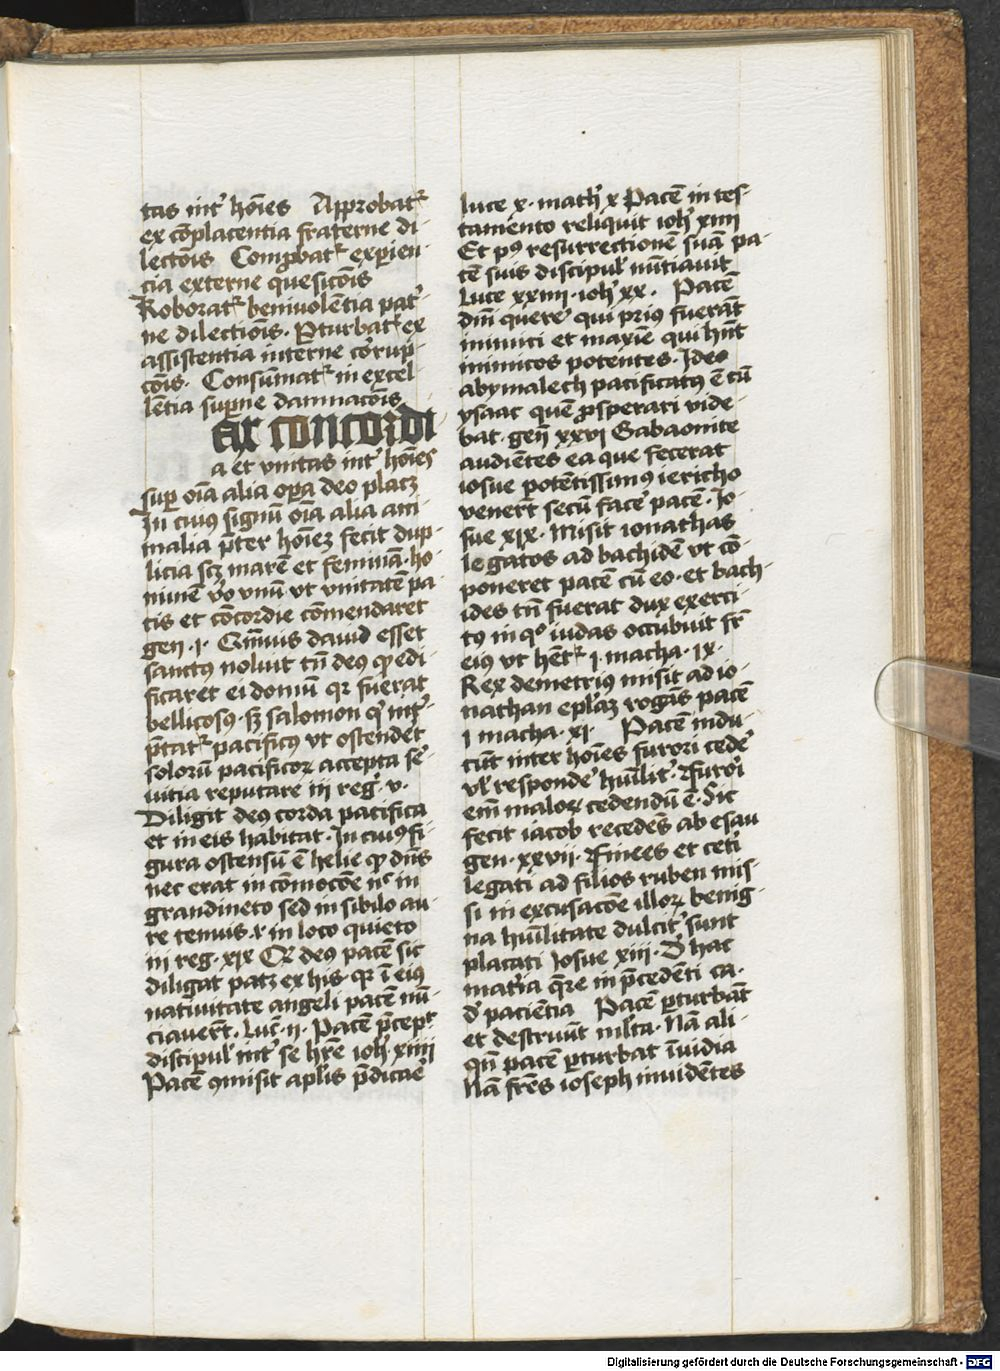 tas int᷑ hoi̅es Approbat᷑
ex co̅placentia fraterne di
lecto̅is Comp̅bat᷑ exp̲ien
cia externe quesico̅is
Roborat᷑ beniuole̅tia pat᷑
ne dilectio̅is. P̲turbat᷑ ex
assistentia interne co̅rup
co̅is. Consu̅mat᷑ in excel
le̅tia sup̲ne damnaco̅is
Ax concordi
a et vnitas int᷑ hoi̅es
sup̲ oi̅a alia op̲a deo placꝫ
In cuiꝰ signu̅ oi̅a alia ani
malia p̅ter hoi̅eꝫ fecit dup
licia scꝫ mare̅ et femina̅. ho
mine̅ v᷑o vnu̅ vt vnitate̅ pa
cis et co̅cordie co̅mendaret
gen. 1. Q̅muis dauid esset
sanctꝰ noluit tn̅ deꝰ ꝙ edi
ficaret ei domu̅ qꝛ fuerat
bellicosꝰ. sꝫ salomon q᷑ int᷑
p̅tat᷑ pacificꝰ vt ostendet᷑
soloru̅ pacificoꝝ accepta se᷑
uitia reputare iii reg᷑. v.
Diligit deꝰ corda pacifica
et in eis habitat. In cuiꝰ fi
gura ostensu̅ e̅ helie ꝙ dn̅s
nec erat in co̅moco̅e nͨ in
grandine to sed in sibilo au
re tenuis. ⁊ in loco quieto
iii reg. xix Qꝫ deꝰ pace̅ sic
diligat patꝫ ex his. qꝛ i̅ eiꝰ
natiuitate angeli pace̅ nu̅
ciauer̅t. Luc᷑. ii. Pace̅ p̅cept᷑
discipul᷑ int᷑ se hr̅e ioh᷑. xiiii
Pace̅ ꝯmisit apl̅is p̅dicae᷑
luce x. math᷑ x Pace̅ in tes
tamento reliquit ioh᷑ xiiii
Et pꝰ resurrectione̅ sua̅ pa
ce̅ suis discipul᷑ nu̅tiauit
Luce xxiiii. ioh᷑ xx. Pace̅
dn̅t quere᷑ qui priꝰ fuera̅t
inimici et maxi̅e qui hn̅t
inimicos potentes. Ideo
abymalech pacificatꝰ e̅ cu̅
ysaac que̅ p̲sperari vide
bat. gen̅ xxvi Gabaonite
audie̅tes ea que fecerat
iosue potentissimꝰ iericho
vener̅t secu̅ face᷑ pace̅. Io
sue xix. Misit ionathas
legatos ad bachide̅ vt co̅
poneret pace̅ cu̅ eo. et bach
ides tn̅ fuerat dux exerci
tꝰ in qͦ iudas occubuit fr̅
eiꝰ vt he̅t᷑ 1. macha. ix.
Rex demetriꝰ misit ad io
nathan epl̅aꝫ roga̅s pace̅
1 macha. xi. Pace̅ indu
cu̅t inter hoi̅es furori cede᷑
vl᷑ responde᷑ hu̅ilit᷑. Furori
em̅ maloꝝ cedendu̅ e̅. Sic
fecit iacob recede̅s ab esau
gen. xxvii. Finees et cet᷑i
legati ad filios ruben mis
si in excusaco̅e illoꝝ benig
na hu̅ilitate dulcit᷑ sunt
placati Iosue xiii. D᷑ hac
mat᷑ia q̅re in p̅cede̅ti ca.
d᷑ pacie̅tia Pace̅ p̲turba̅t
et destruu̅t ml̅ta. Na̅ ali
qn̅ pace̅ p̲turbat i̅uidia
Na̅ fr̅es ioseph inuide̅tes
Digitalisierung gefördert durch die Deutsche Forschungsgemeinschaft - DFG